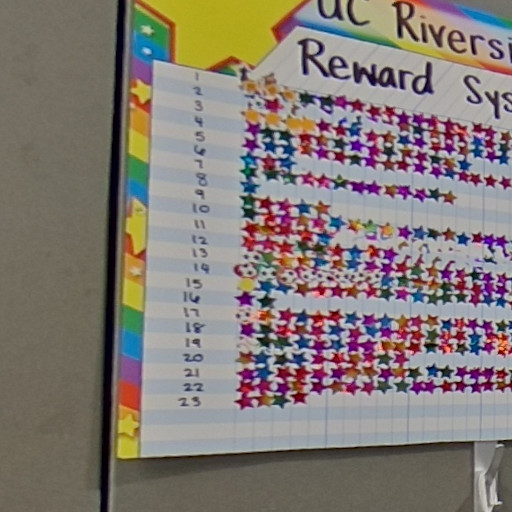 UC Riversi
Reward Sys
1
2
3
4
5
6
7
8
9
10
11
12
13
14
15
16
17
18
19
20
21
22
23